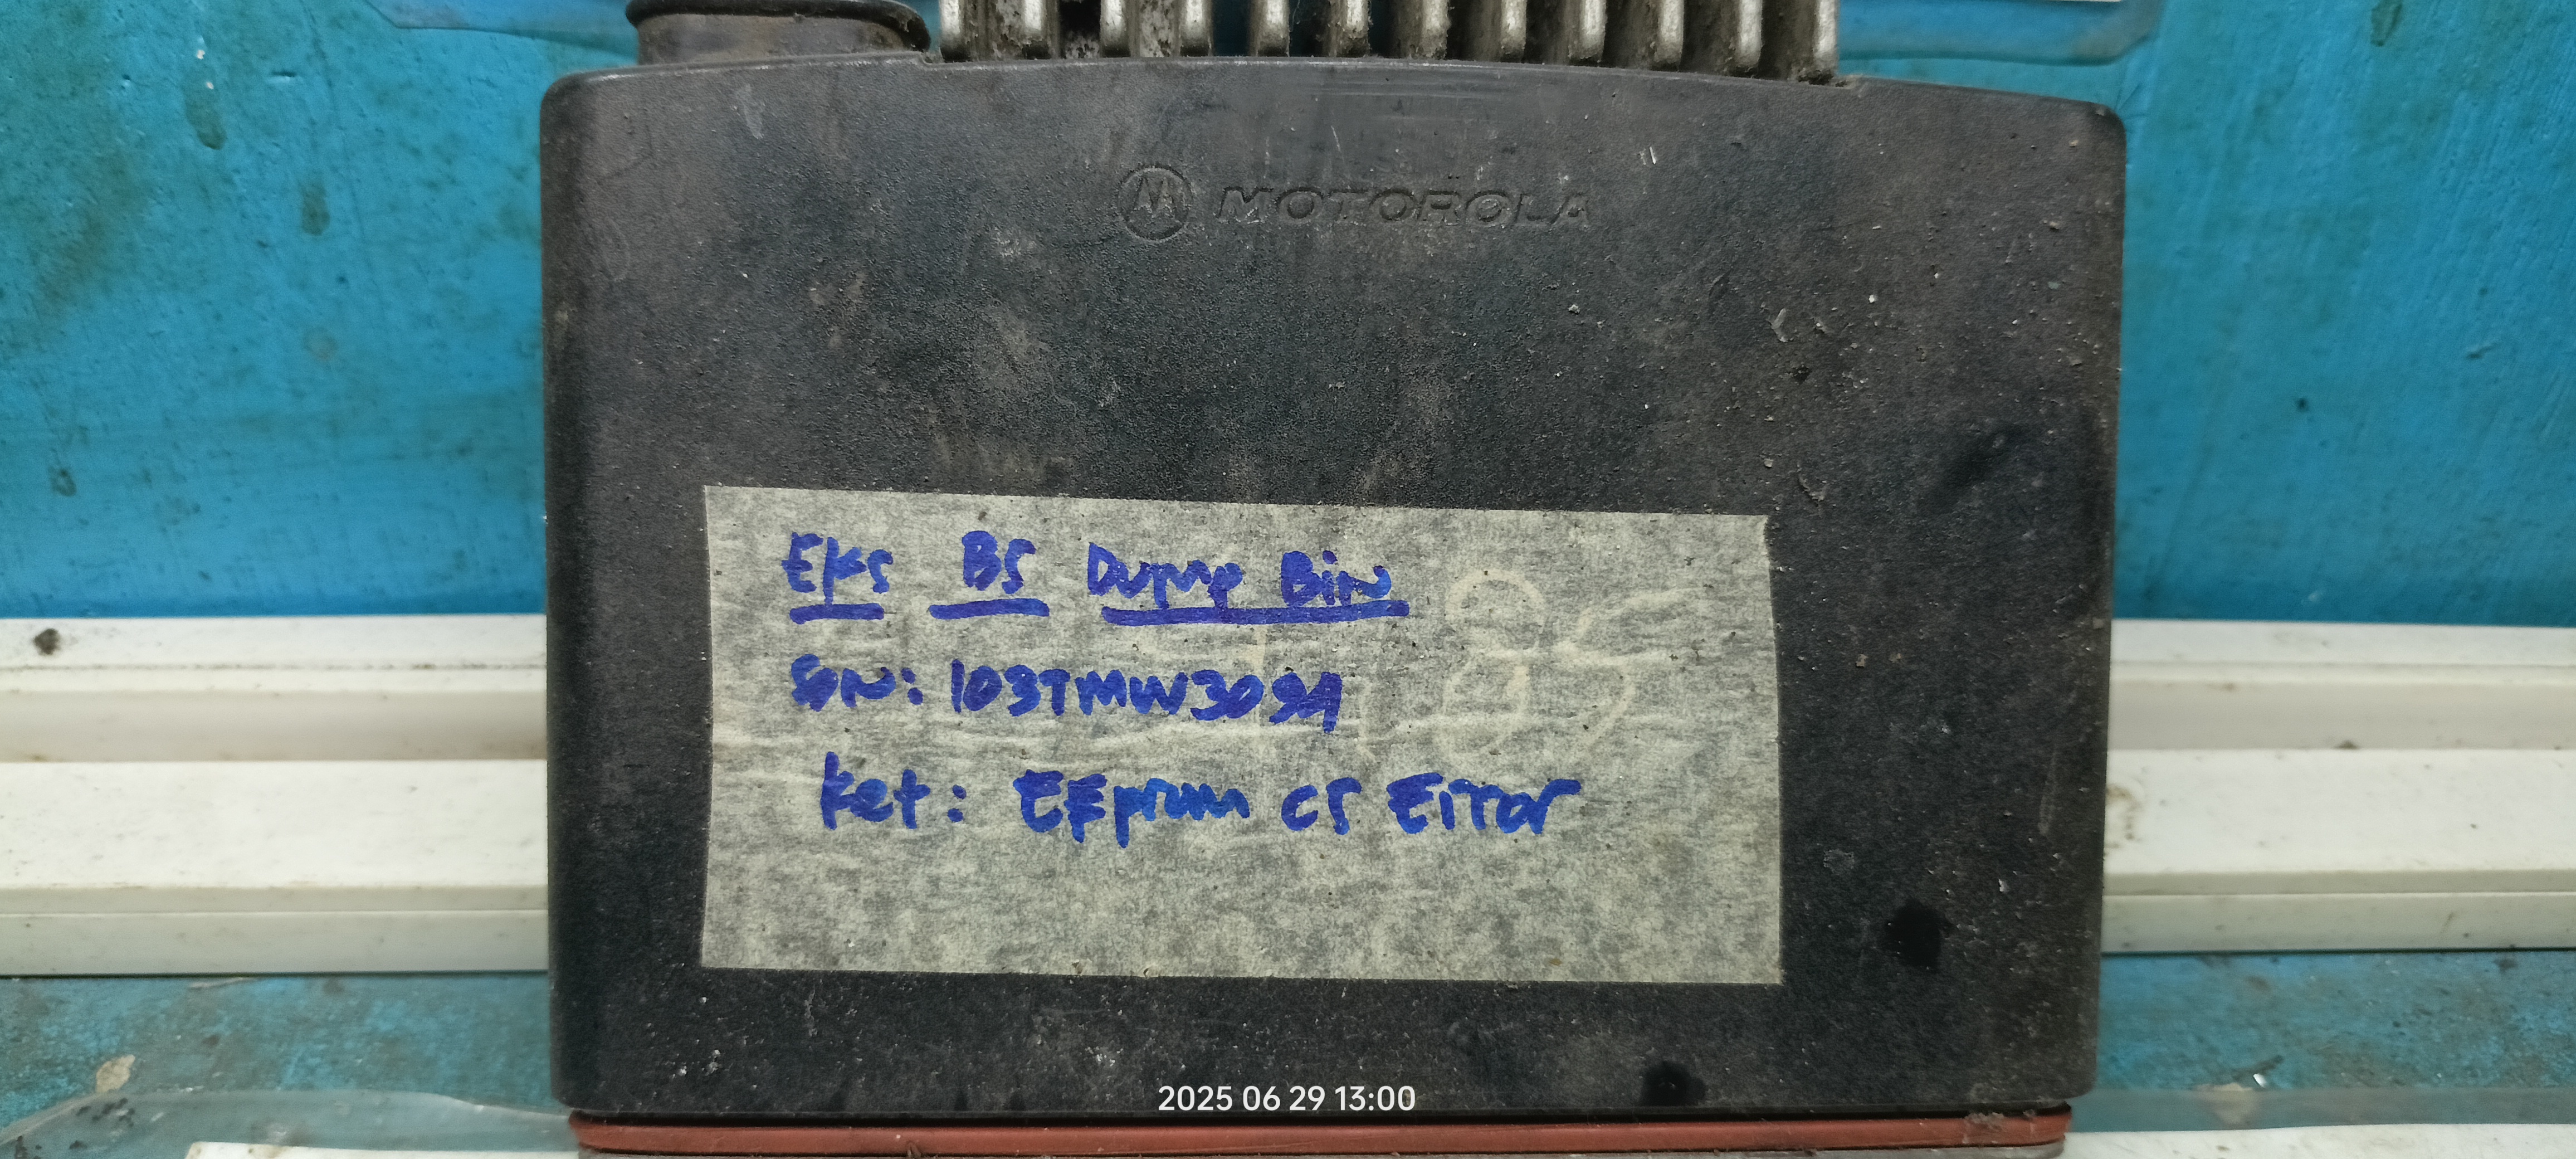 MOTOROLA
EKS BS Dump Bin
SN: 103TMW3094
Ket: EEprom CS Error
2025 06 29 13:00